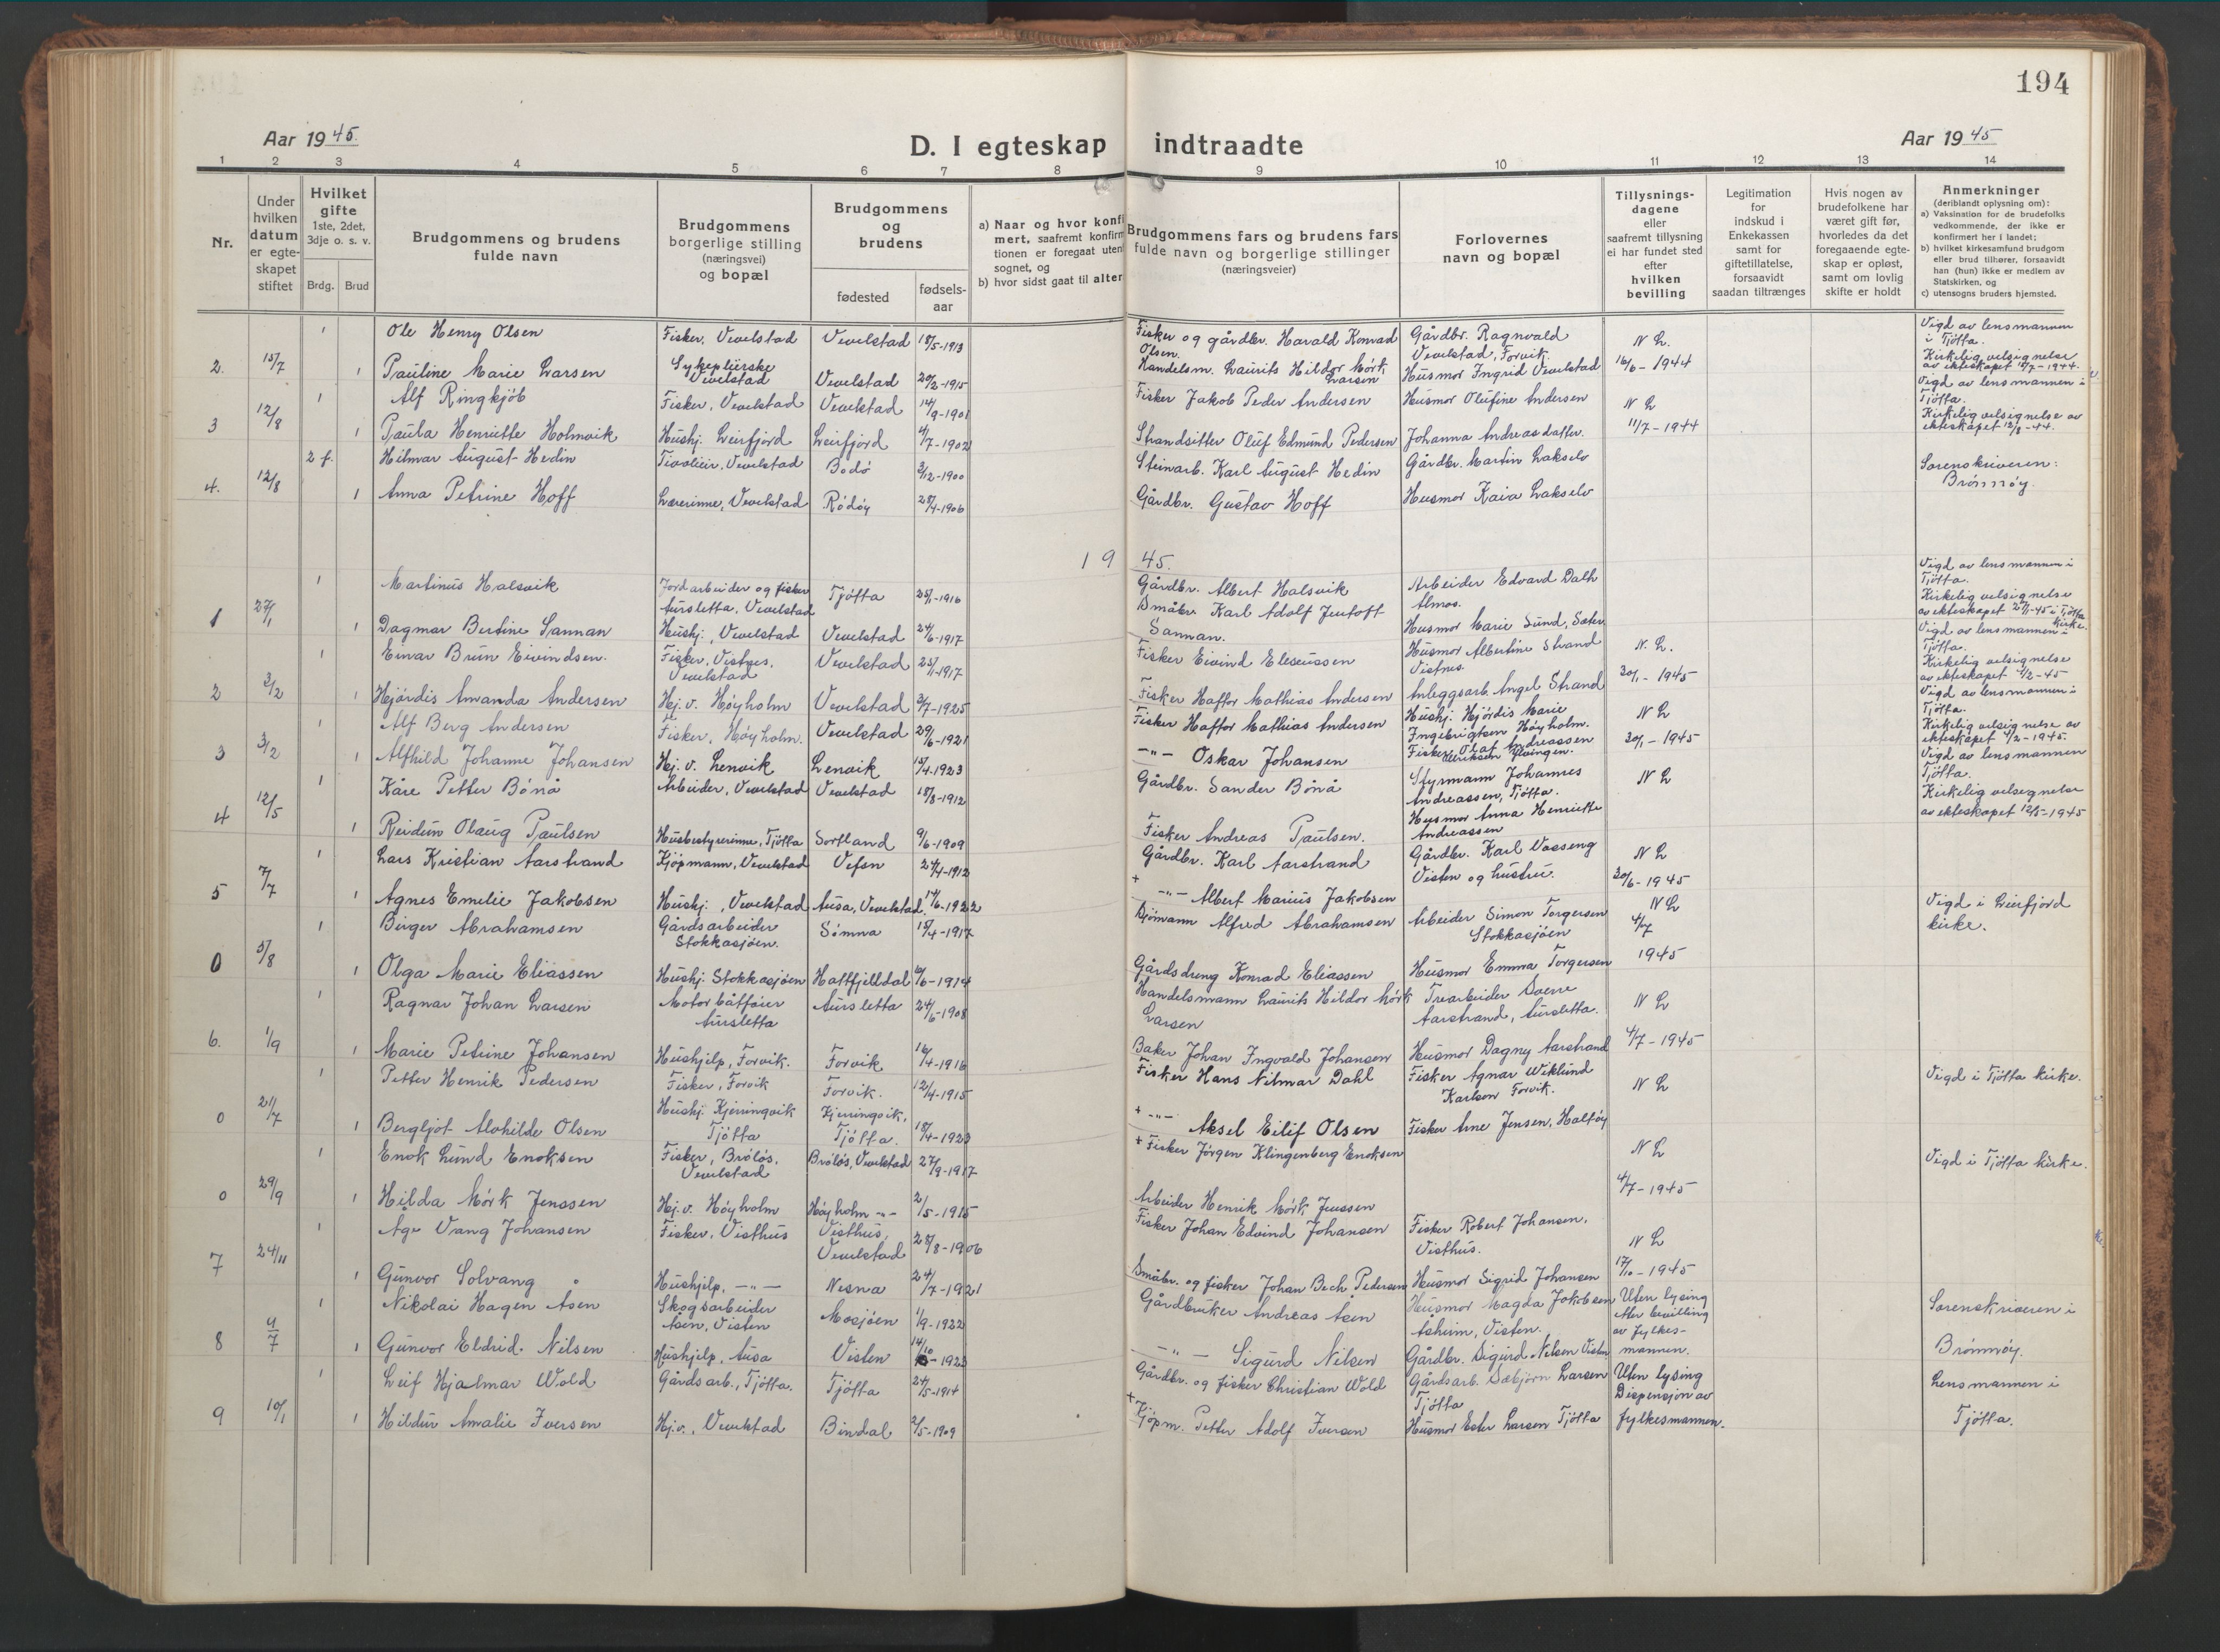 194
Aar 1945.
D. I egteskap indtraadte
Aar 1945
1 2 3 4 5 6 7 8 9 10 11 12 13 14
Nr.
Under hvilken datum er egte-skapet stiftet
Hvilket gifte 1ste, 2det, 3dje o. s. v.
Brdg. Brud
Brudgommens og brudens fulde navn
Brudgommens borgerlige stilling (næringsvei) og bopæl
Brudgommens og brudens
fødested
fødsels-aar
a) Naar og hvor konfi
mert, saafremt konfirm
tionen er foregaat uten
sognet, og
b) hvor sidst gaat til alter
Brudgommens fars og brudens fars fulde navn og borgerlige stillinger (næringsveier)
Forlovernes navn og bopæl
Tillysnings-dagene eller saafremt tillysning ei har fundet sted efter hvilken bevilling
Legitimation for indskud i Enkekassen samt for giftetillatelse, forsaavidt saadan tiltrænges
Hvis nogen av brudefolkene har været gift før, hvorledes da det foregaaende egte-skap er opløst, samt om lovlig skifte er holdt
Anmerkninger (deriblandt oplysning om):
a) Vaksination for de brudefolks vedkommende, der ikke er konfirmert her i landet;
b) hvilket kirkesamfund brudgom eller brud tilhører, forsaavidt han (hun) ikke er medlem av Statskirken, og
c) utensogns bruders hjemsted.
1 Ole Henry Olsen Fisker, Vevelstad Vevelstad 18/5-1913 Fisker og gårdbr. Harald Konrad Olsen. Gårdbr. Ragnvald Vevelstad, Forvik. N L. Vigd av lensmannen i Tjøtta.
2. 15/7 1 Pauline Marie Larsen Sykepleierske Vevelstad Vevelstad 20/2-1915 Handelsm. Laurits Hildor Mørk Larsen Husmor Ingrid Vevelstad 16/6-1944 Kirkelig velsignelse av ekteskapet 15/7-1944.
1 Alf Ringkjøb Fisker, Vevelstad Vevelstad 14/9-1901 Fisker Jakob Peder Andersen Husmor Olufine Andersen N L Vigd av lensmannen i Tjøtta.
3 12/8 1 Paula Henriette Holmvik Hushj. Leirfjord Leirfjord 4/7-1902 Strandsitter Oluf Edmund Pedersen Johanna Andreasdatter. 11/7-1944 Kirkelig velsignelse av ekteskapet 12/8-44.
2 f. Hilmar August Hedin Vevelstad Bodø 3/12-1900 Steinarb. Karl August Hedin Gårdbr. Martin Lakselv Sorenskriveren:
4. 12/8 1 Anna Petrine Hoff Lærerinne, Vevelstad Rødøy 28/4-1906 Gårdbr. Gustav Hoff Husmor Kaia Lakselv Brønnøy.
1945.
1 Martinus Halsvik Jordarbeider og fisker Aursletta, Vevelstad Tjøtta 25/1-1916 Gårdbr. Albert Halsvik Arbeider Edvard Dalh Almos. Vigd av lensmannen i Tjøtta.
1 27/1 1 Dagmar Berdine Sannan Hushj., Vevelstad Vevelstad 24/6-1917 Småbr. Karl Adolf Jentoft Sannan. Husmor Marie Sund, Kirkelig velsignelse av ekteskapet 27/1-45 i Tjøtta kirke.
1 Einar Brun Eivindsen. Fisker, Vistnes. Vevelstad Vevelstad 25/1-1917 Fisker Eivind Eleseussen Husmor Albertine Strand Vistnes. N. L. Vigd av lensmannen i Tjøtta.
2 3/2 1 Hjørdis Amanda Andersen Hj. v. Høyholm Vevelstad 3/7-1925 Fisker Haftor Mathias Andersen Anleggsarb. Angel Strand 20/1-1945 Kirkelig velsignelse av ekteskapet 4/2-45
1 Alf Berg Andersen Fisker, Høyholm. Vevelstad 29/6-1921 Fisker Haftor Mathias Andersen Hushj. Hjørdis Marie Ingebrigtsen Høyholm. N L Vigd av lensmannen i Tjøtta.
3 3/2 1 Alfhild Johanne Johansen Hj. v. Lenvik Lenvik 15/4-1923 -"- Oskar Johansen Fisker Olaf Andreassen 20/1-1945 Kirkelig velsignelse av ekteskapet 4/2-1945.
1 Kåre Petter Bønå Arbeider, Vevelstad Vevelstad 18/8-1912 Gårdbr. Sander Bønå Styrmann Johannes Andreassen, Tjøtta. N L Vigd av lensmannen Tjøtta.
4 12/5 1 Reidun Olaug Paulsen Husbestyrerinne, Tjøtta Sortland 9/6-1909 Fisker Andreas Paulsen. Husmor Anna Henriette Andreassen Kirkelig velsignelse av ekteskapet 12/5-1945
1 Lars Kristian Aarstrand Kjøpmann, Vevelstad Vefsn 24/4-1912 Gårdbr. Karl Aarstrand Gårdbr. Karl Vasseng N L
5 7/7 1 Agnes Emelie Jakobsen Hushj., Vevelstad Ausa, Vevelstad. 14/6-1922 + -"- Albert Marius Jakobsen Visten og hustru. 20/6-1945
1 Birger Abrahamsen Gårdsarbeider Stokkasjøen. Sømna 15/4-1917 Sjømann Alfred Abrahamsen Arbeider Simon Torgersen Stokkasjøen N L 4/7 Vigd i Leirfjord kirke.
0 5/8 1 Olga Marie Eliassen Hushj. Stokkasjøen Hattfjelldal 6/6-1914 Gårdsdreng Konrad Eliassen Husmor Emma Torgersen 1945
1 Ragnar Johan Larsen Motorbåtfører Aursletta Aursletta 24/6-1908 Handelsmann Laurits Hildor Mørk Larsen Trearbeider Sverre Aarstrand, Aursletta. N L
6. 1/9 1 Marie Petrine Johansen Hushjelp, Forvik. Forvik 16/4-1916 Baker Johan Ingvald Johansen Husmor Dagny Aarstrand 4/7-1945
1 Petter Henrik Pedersen Fisker, Forvik Forvik. 12/4-1915 Fisker Hans Nilmar Dahl Fisker Agnar Wiklund Karlsen Forvik. N L Vigd i Tjøtta kirke.
0 21/7 1 Bergljot Alvhilde Olsen Hushj. Kjerringvik Tjøtta Kjerringvik, Tjøtta. 18/4-1923 + -"- Aksel Eilif Olsen Fisker Arne Jensen, Haltøy
1 Enok Lund Enoksen Fisker, Brøløs, Vevelstad Brøløs, Vevelstad 27/9-1917 + Fisker Jørgen Klingenberg Enoksen N L Vigd i Tjøtta kirke.
0 29/9 1 Hilda Mørk Jenssen Hj. v. Høyholm Høyholm -"- 2/5-1915 Arbeider Henrik Mørk Jenssen 4/7-1945
1 Åge Vang Johansen Fisker, Visthus Visthus, Vevelstad 28/8-1906 Fisker Johan Edvind Johansen Fisker Robert Johansen, Visthus. N L
7 24/11 1 Gunvor Solvang Hushjelp, -"- Nesna 24/7-1921 Småbr. og fisker Johan Bech Pedersen Husmor Sigrid Johansen 17/10-1945
1 Nikolai Hagen Åsen Skogsarbeider Åsen, Visten Mosjøen 1/9-1922 Gårdbruker Andreas Åsen Husmor Magda Jakobsen Åsheim, Visten. Uten lysing etter bevilling av fylkes-mannen. Sorenskriveren i
8 4/7 1 Gunvor Eldrid. Nilsen Hushjelp, Ausa Visten 14/10-1923 -"- Sigurd Nilsen Gårdbr. Sigurd Nilsen Visten Brønnøy.
1 Leif Hjalmar Wold Gårdsarb., Tjøtta. Tjøtta 24/5-1914 Gårdbr. og fisker Christian Wold Gårdsarb. Sæbjørn Larsen Tjøtta Uten lysing Dispensjon av fylkesmannen. Lensmannen i
9 10/1 1 Hildur Amalie Iversen Hj.v., Vevelstad Bindal 2/5-1909 + Kjøpm. Petter Adolf Iversen Husmor Ester Larsen Tjøtta Tjøtta.